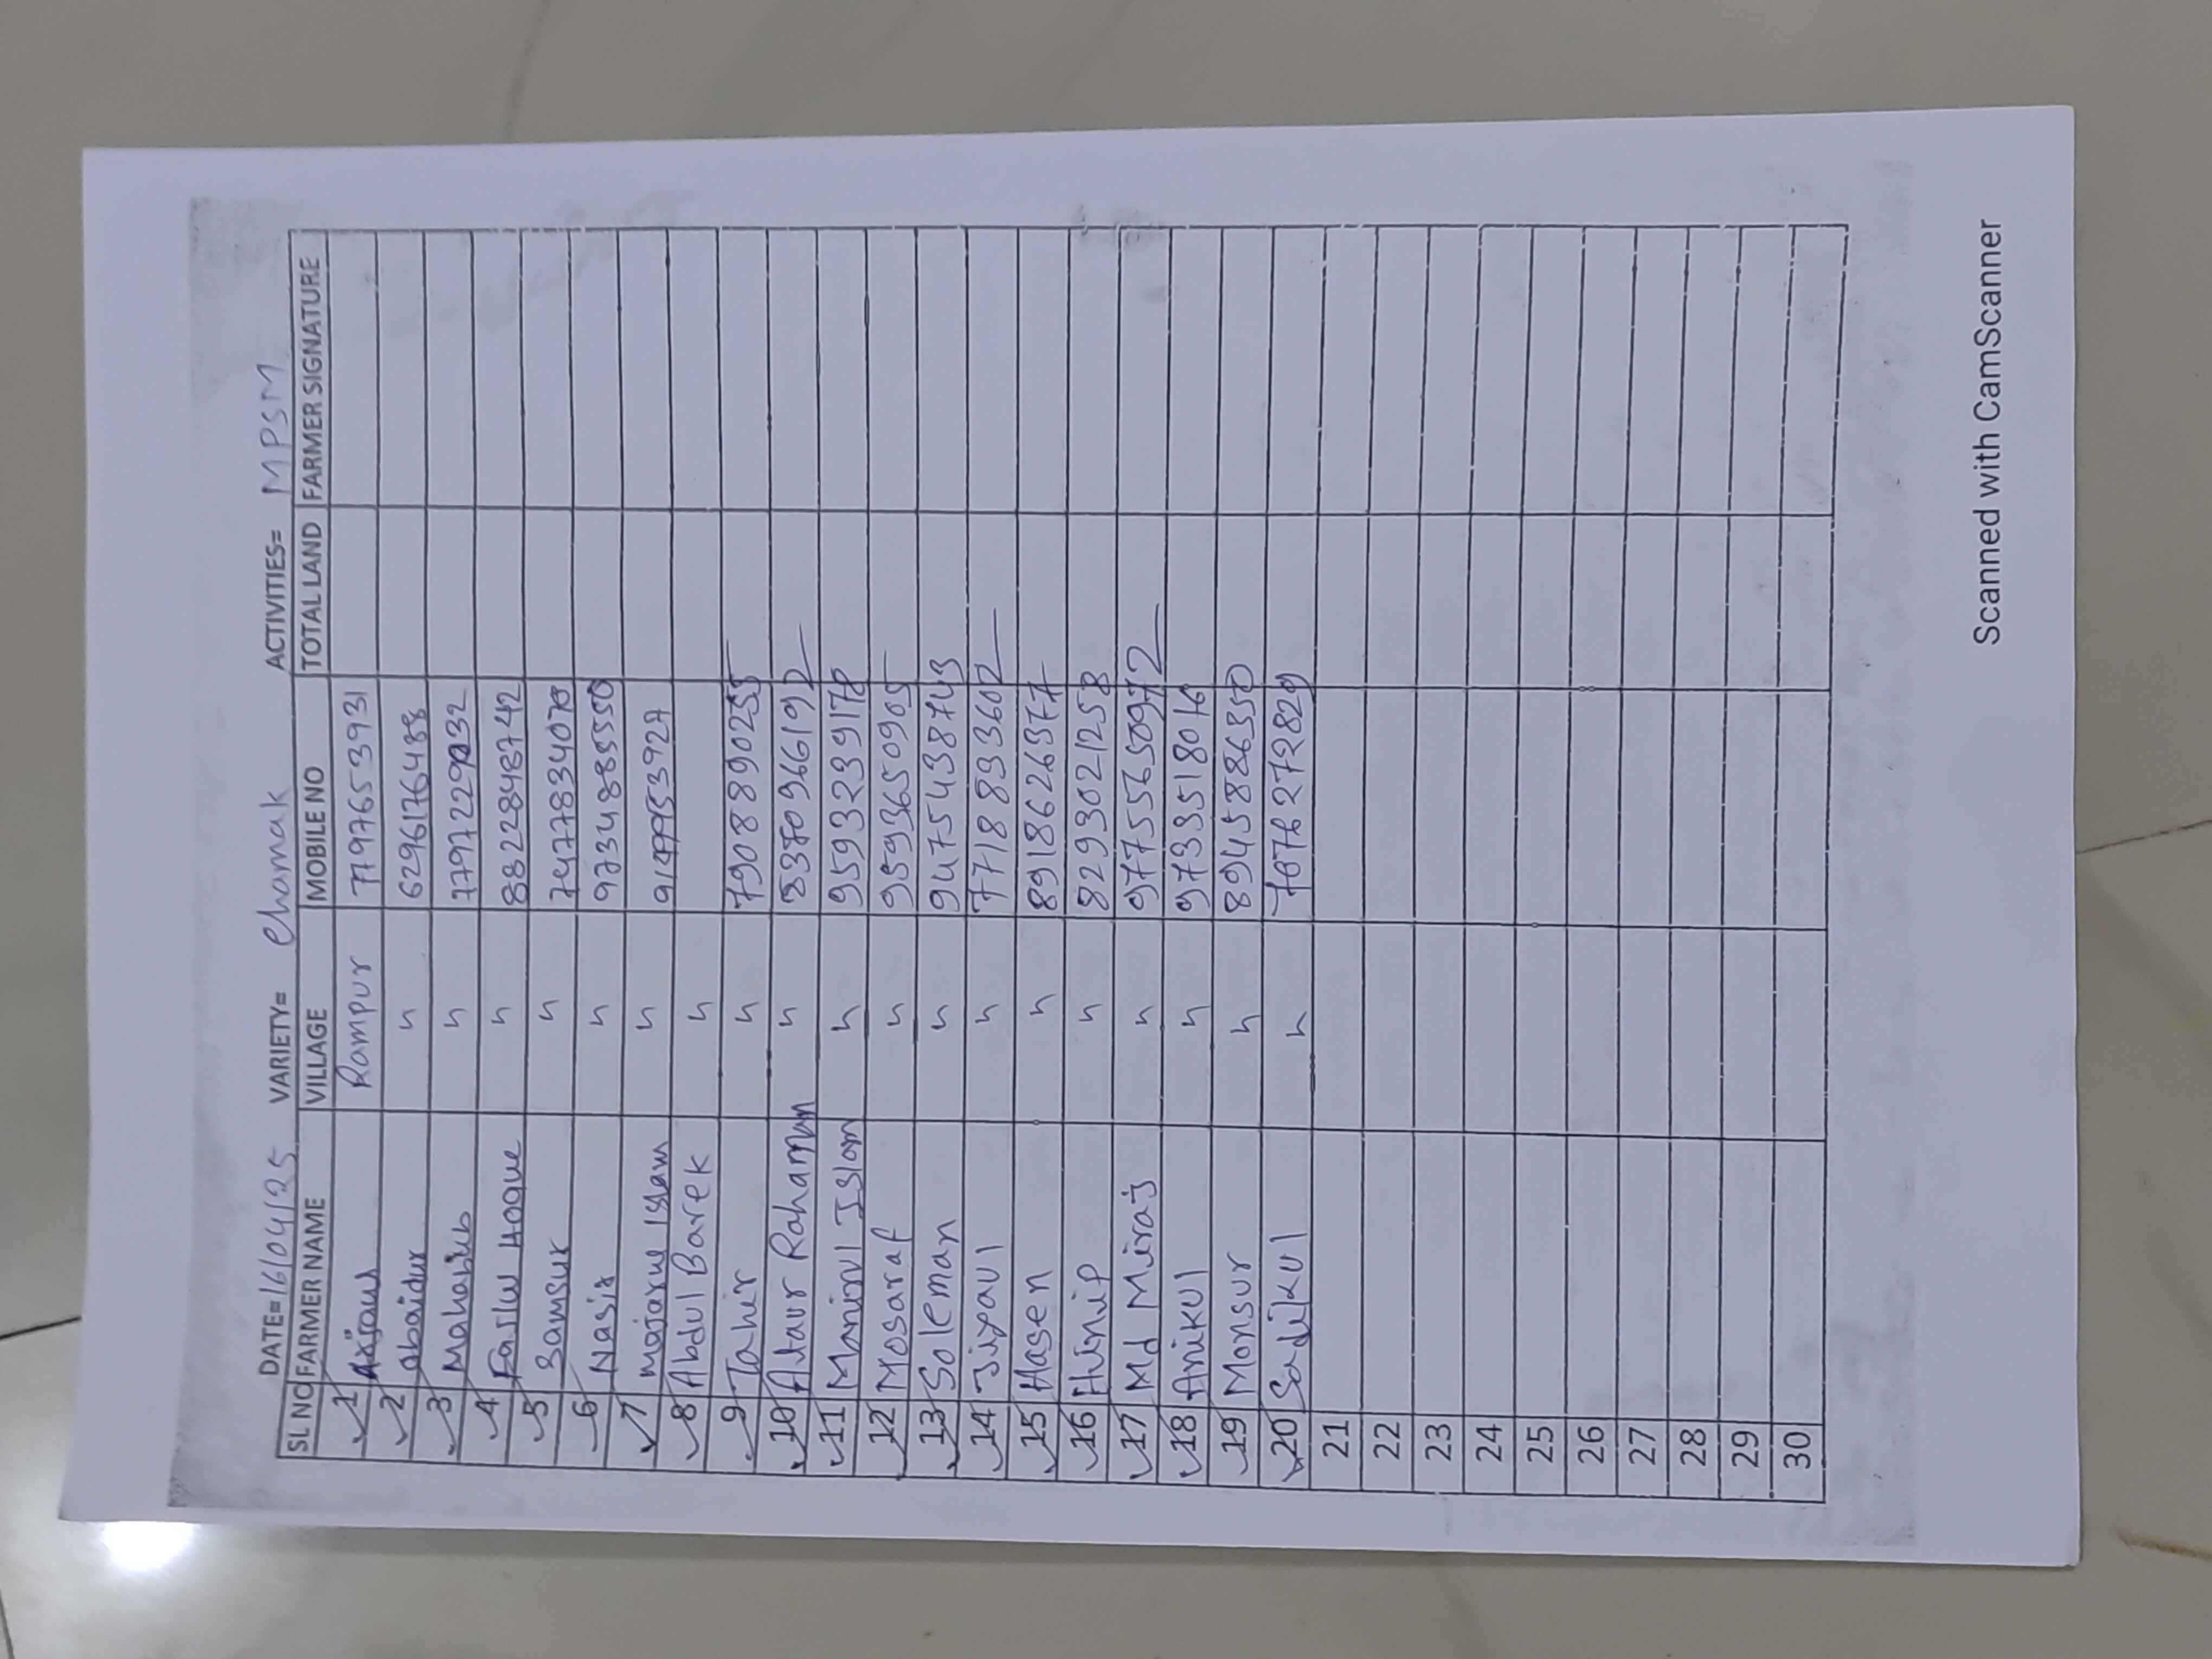 DATE=16/04/25 VARIETY= Chamak ACTIVITIES= MPSM
SL NO FARMER NAME VILLAGE MOBILE NO TOTAL LAND FARMER SIGNATURE
1 Rampur 7797653931
2 Obaidur " 6296176488
3 Mahabub " 
4 Faslu Hoque " 8822848742
5 Samsur " 7477834078
6 Nasir " 9734885550
7 Majarul Islam "
8 Abdul Barek "
9 Tahir " 7908890255
10 Ataur Rahaman " 8370966192
11 Manirul Islam " 9593239178
12 Mosaraf " 9593650905
13 Soleman " 9475438743
14 Jiyaul " 7718833602
15 Hasen " 8918626377
16 Hinif " 8293021258
17 Md Miraj "
18 Anikul " 9733518016
19 Monsur " 8945886350
20 Sadikul " 7076272829
21
22
23
24
25
26
27
28
29
30
Scanned with CamScanner